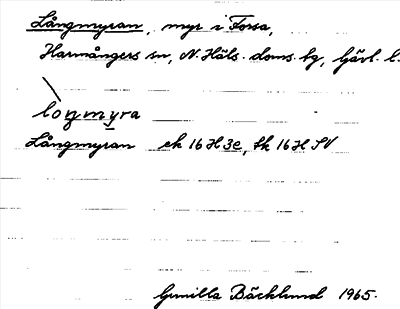 Långmyran, myr i Forsa,
Harmångers sn, N. Häls. doms. tg, Gävl. l.
loŋmyra
Långmyran ek 16 H 3e, tk 16 H SV
Gunilla Bäcklund 1965.